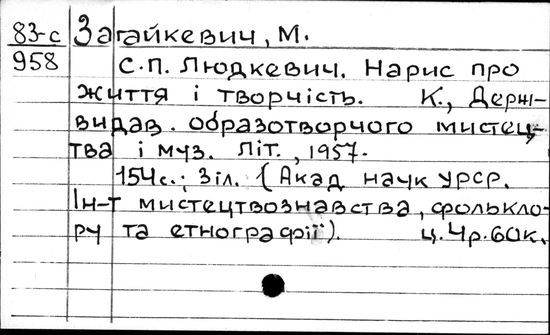 83-с Загайкевич, М.
958 С.П. Людкевич. Нарис про
життя і творчість. К., Держ-
видав. образотворчого мистец-
тва і муз. літ., 1957.
154с.; Зіл. (Акад наук УРСР.
Ін-т мистецтвознавства, фолькло-
ру та етнографії). ц. 4р. 60к.